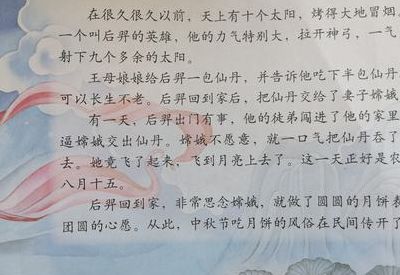 在很久很久以前，天上有十个太阳，烤得大地冒烟。
一个叫后羿的英雄，他的力气特别大，拉开神弓，一气
射下九个多余的太阳。
王母娘娘给后羿一包仙丹，并告诉他吃下半包仙丹
可以长生不老。后羿回到家后，把仙丹交给了妻子嫦娥
有一天，后羿出门有事，他的徒弟闯进了他的家里
逼嫦娥交出仙丹。嫦娥不愿意，就一口气把仙丹吞了
去。她竟飞了起来，飞到月亮上去了。这一天正好是农
八月十五。
后羿回到家，非常思念嫦娥，就做了圆圆的月饼表
团圆的心愿。从此，中秋节吃月饼的风俗在民间传开了